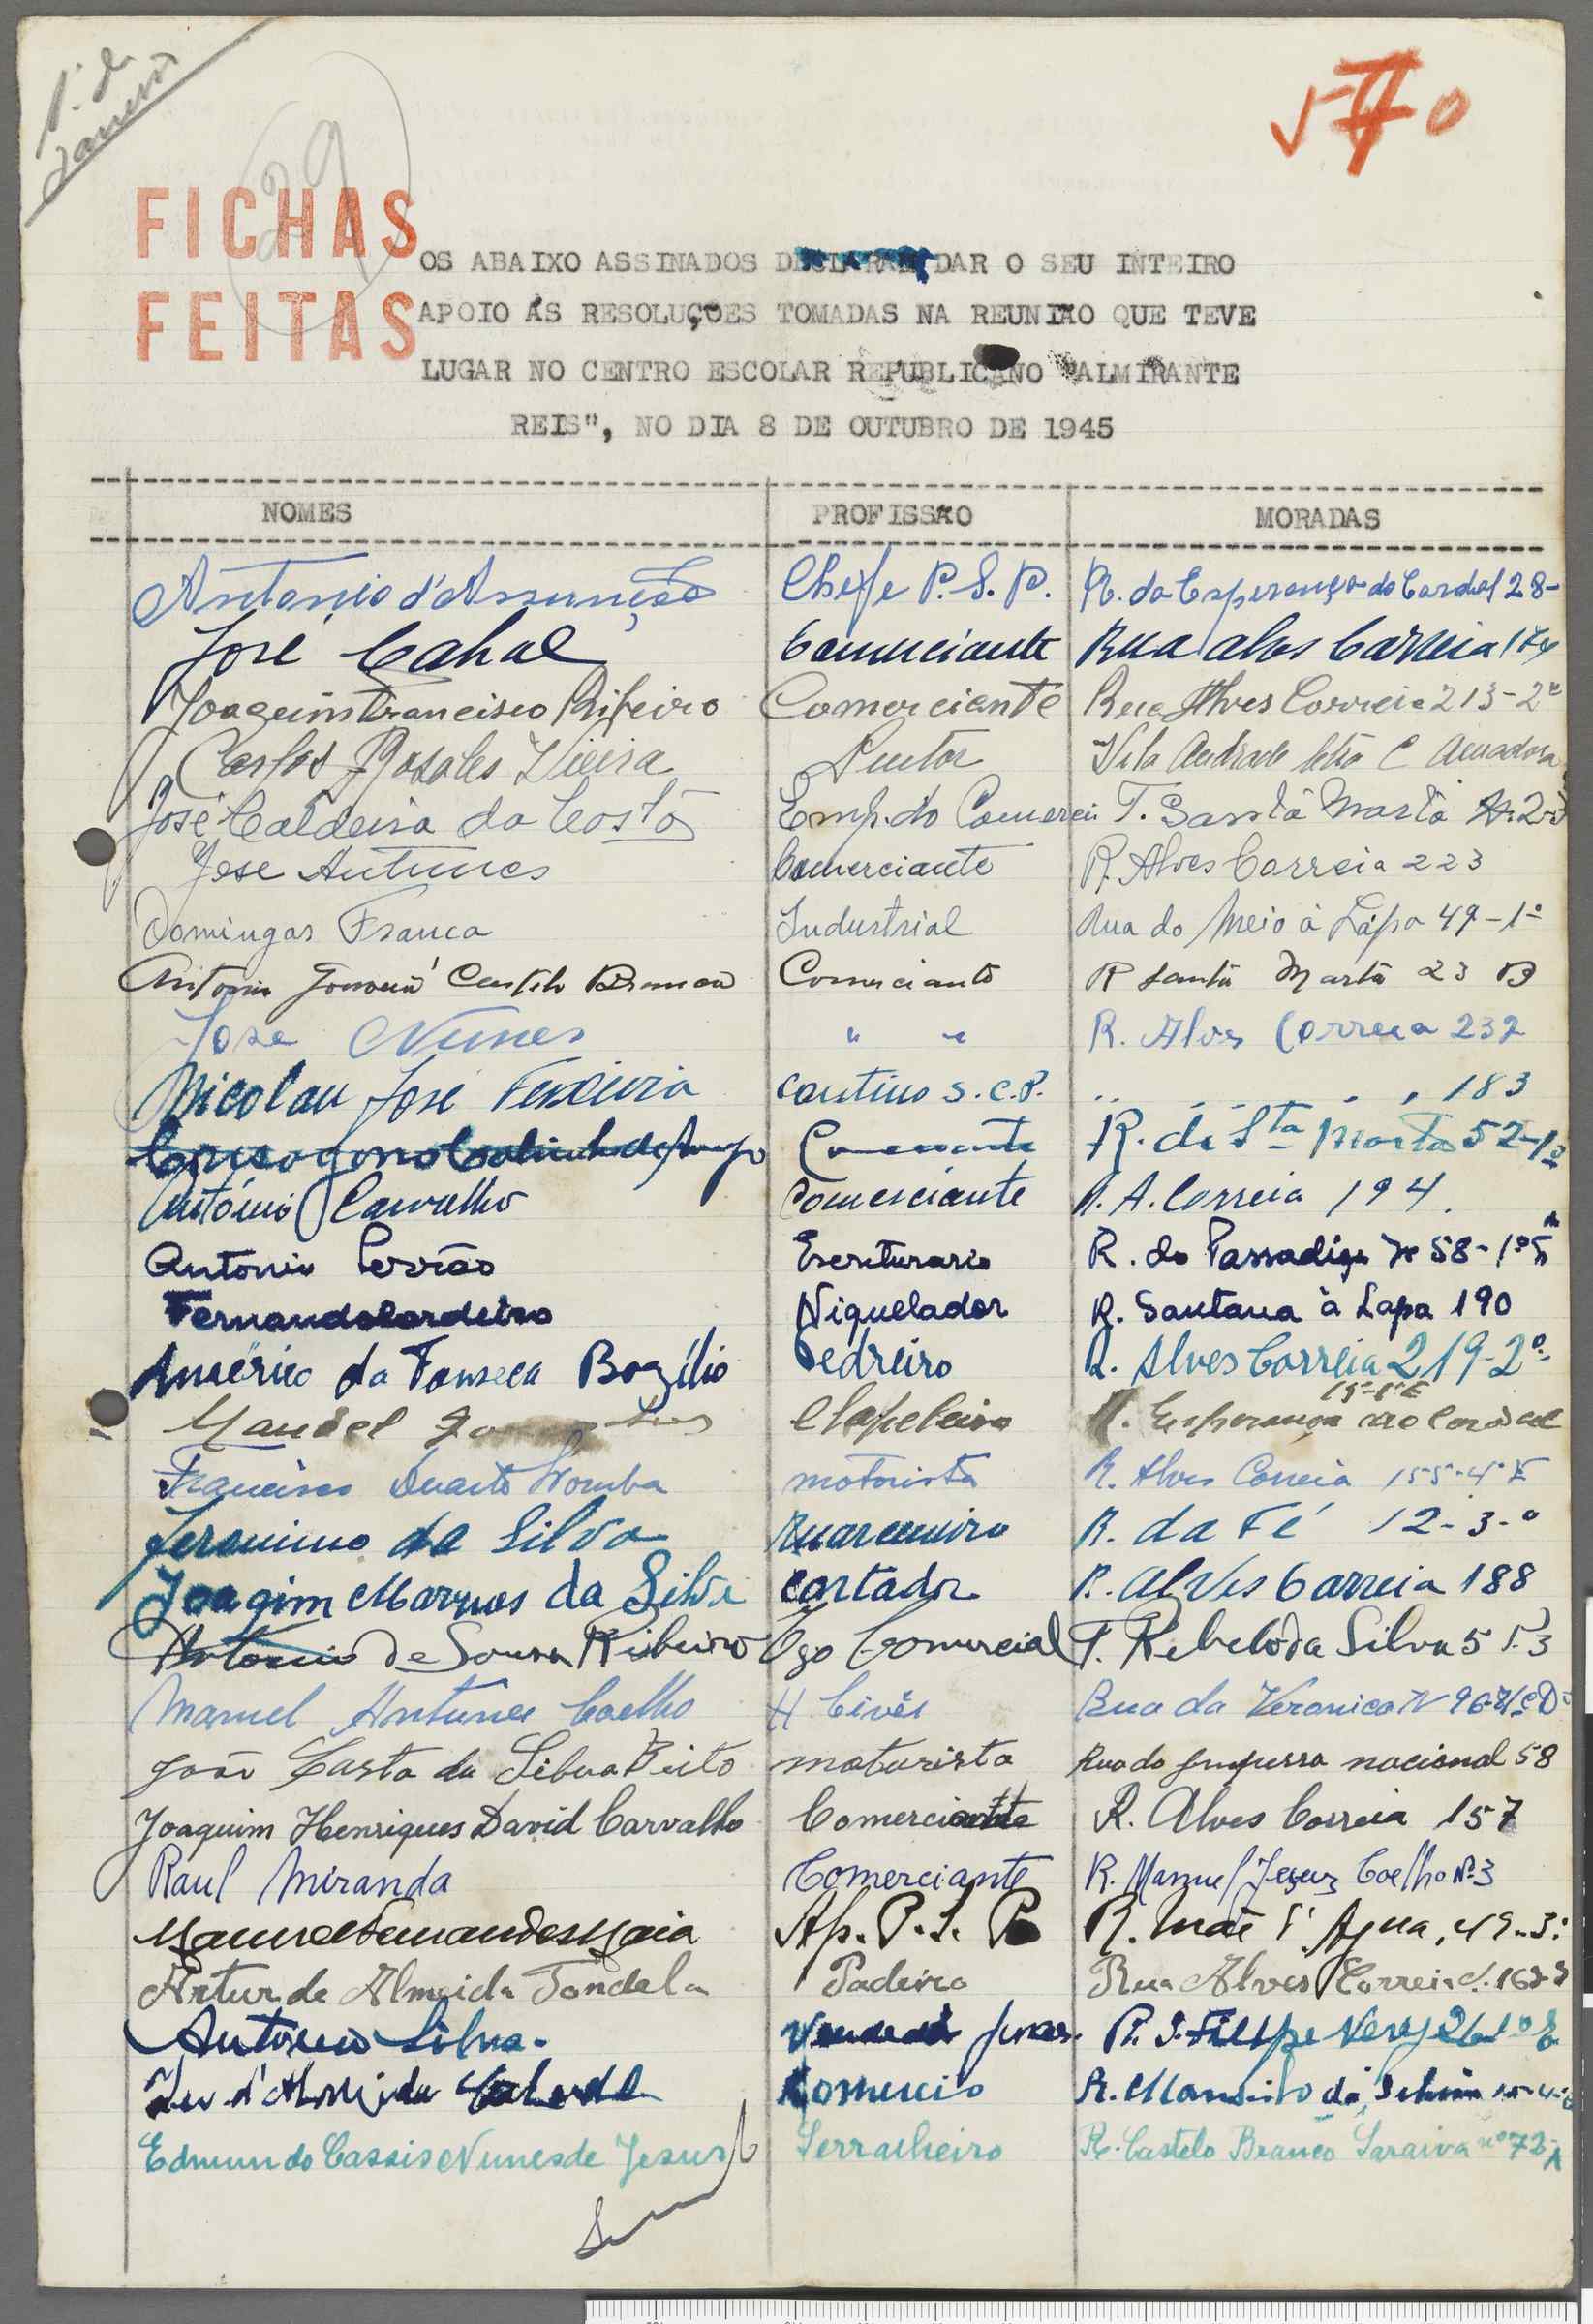 1º de
Janeiro
570
29
FICHAS
FEITAS
OS ABAIXO ASSINADOS DECLARAM DAR O SEU INTEIRO
APOIO ÁS RESOLUÇOES TOMADAS NA REUNIAO QUE TEVE
LUGAR NO CENTRO ESCOLAR REPUBLICANO "ALMIRANTE
REIS", NO DIA 8 DE OUTUBRO DE 1945
NOMES PROFISSAO MORADAS
Antonio d'Assunção Chefe P. S. P. R. da Esperança do Cardal 28-
José Cabral Comerciante Rua Alves Correia
Joaquim Francisco Ribeiro Comerciante Rua Alves Correia 213-2º
Carlos Rosales Vieira Pintor Vila Andrade letra C Amadora
José Caldeira da Costa Emp. do Comercio T. Santa Marta
Jose Antunes Comerciante R. Alves Correia 223
Domingas Franca Industrial Rua do Meio á Lapa 49-1º
Antonio Castelo Branco Comerciante R Santa Marta 23 B
Jose Nunes " " R. Alves Correia 232
Nicolau José Teixeira contino S. C. P. " " " , 183
R. de Sta Marta 52-1º
António Carvalho Comerciante R. A. Correia 194.
Antonio Serrão Escriturario R. do Passadiço Nº 58-1º
Fernando Cordeiro Niquelador R. Santana à Lapa 190
Américo da Fonseca Bazílio Pedreiro R. Alves Correia 219-2º
Manuel Chapeleiro R. Esperança ao Cardal
Francisco Duarte motorista R. Alves Correia 155-4º E
Jeronimo da Silva Marceneiro R. da Fé 12-3-º
Joaqim Marques da Silva cortador R. Alves Correia 188
Antonio de Sousa Ribeiro Comercial T. Rebelo da Silva 5
Manuel Antunes Coelho Rua da Veronica N 96
João Costa da Silva Brito moturista Rua da Imprensa nacional 58
Joaquim Henriques David Carvalho Comerciante R. Alves Correia 157
Raul Miranda Comerciante R. Manuel Jezuz Coelho Nº 3
Manuel Fernandes Maia Ap. P. S. P. R. Mãe d'Agua, 49-3º
Artur de Almeida Tondela Padeiro Rua Alves Correia
Antonio Silva. R. S. Filipe Nery 26 1º E
d'Almeida Comercio R.
Edmundo Cassis Nunes de Jesus Serralheiro R. Castelo Branco Saraiva nº 72-A